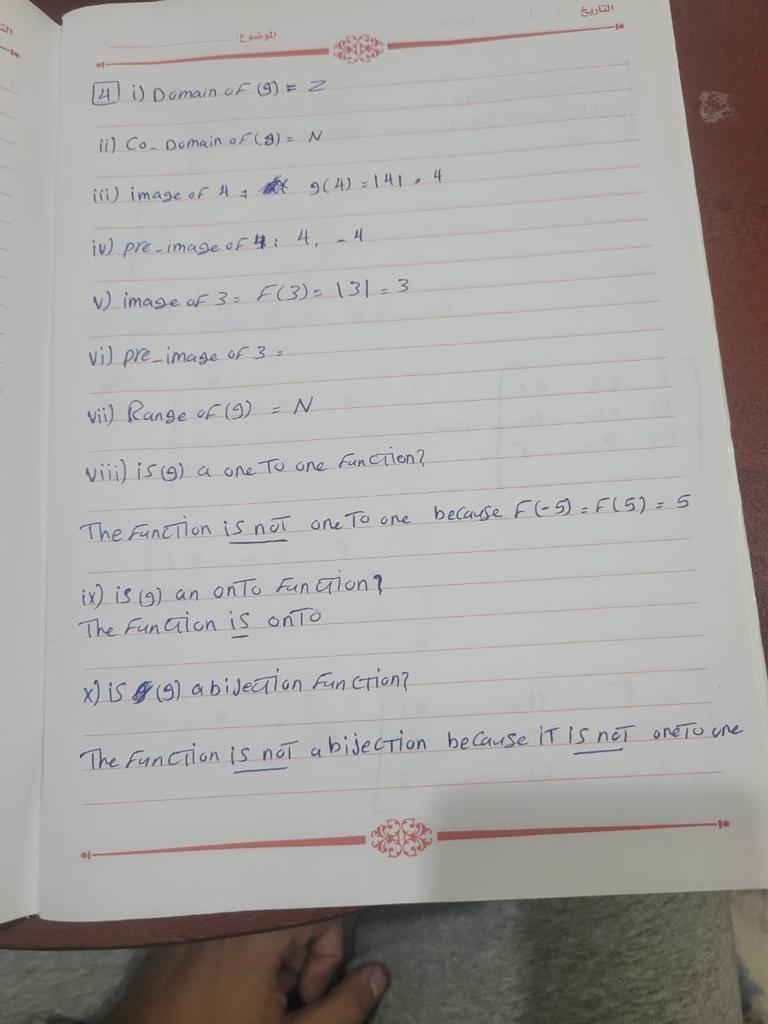 التاريخ
الموضوع:
4 i) Domain of (g) = Z
ii) Co-Domain of (g) = N
iii) image of 4 = g(4) = |4| = 4
iv) pre-image of 4: 4, -4
v) image of 3 = F(3) = |3| = 3
vi) pre-image of 3 =
vii) Range of (g) = N
viii) is (g) a one To one function?
The function is not one To one because F(-5) = F(5) = 5
ix) is (g) an onTo function?
The function is onTo
x) is (g) a bijection function?
The function is not a bijection because iT is not oneTo one